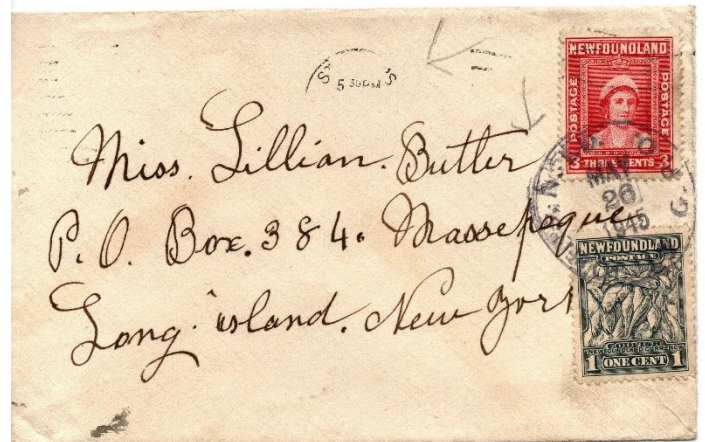 5 30 PM
NEWFOUNDLAND
POSTAGE
POSTAGE
3 THREE CENTS 3
MAY
26
1945
Miss. Lillian. Butler
P.O. Box. 384. Massepeque
Long. island. New York
NEWFOUNDLAND
POSTAGE
CODFISH
1 ONE CENT 1